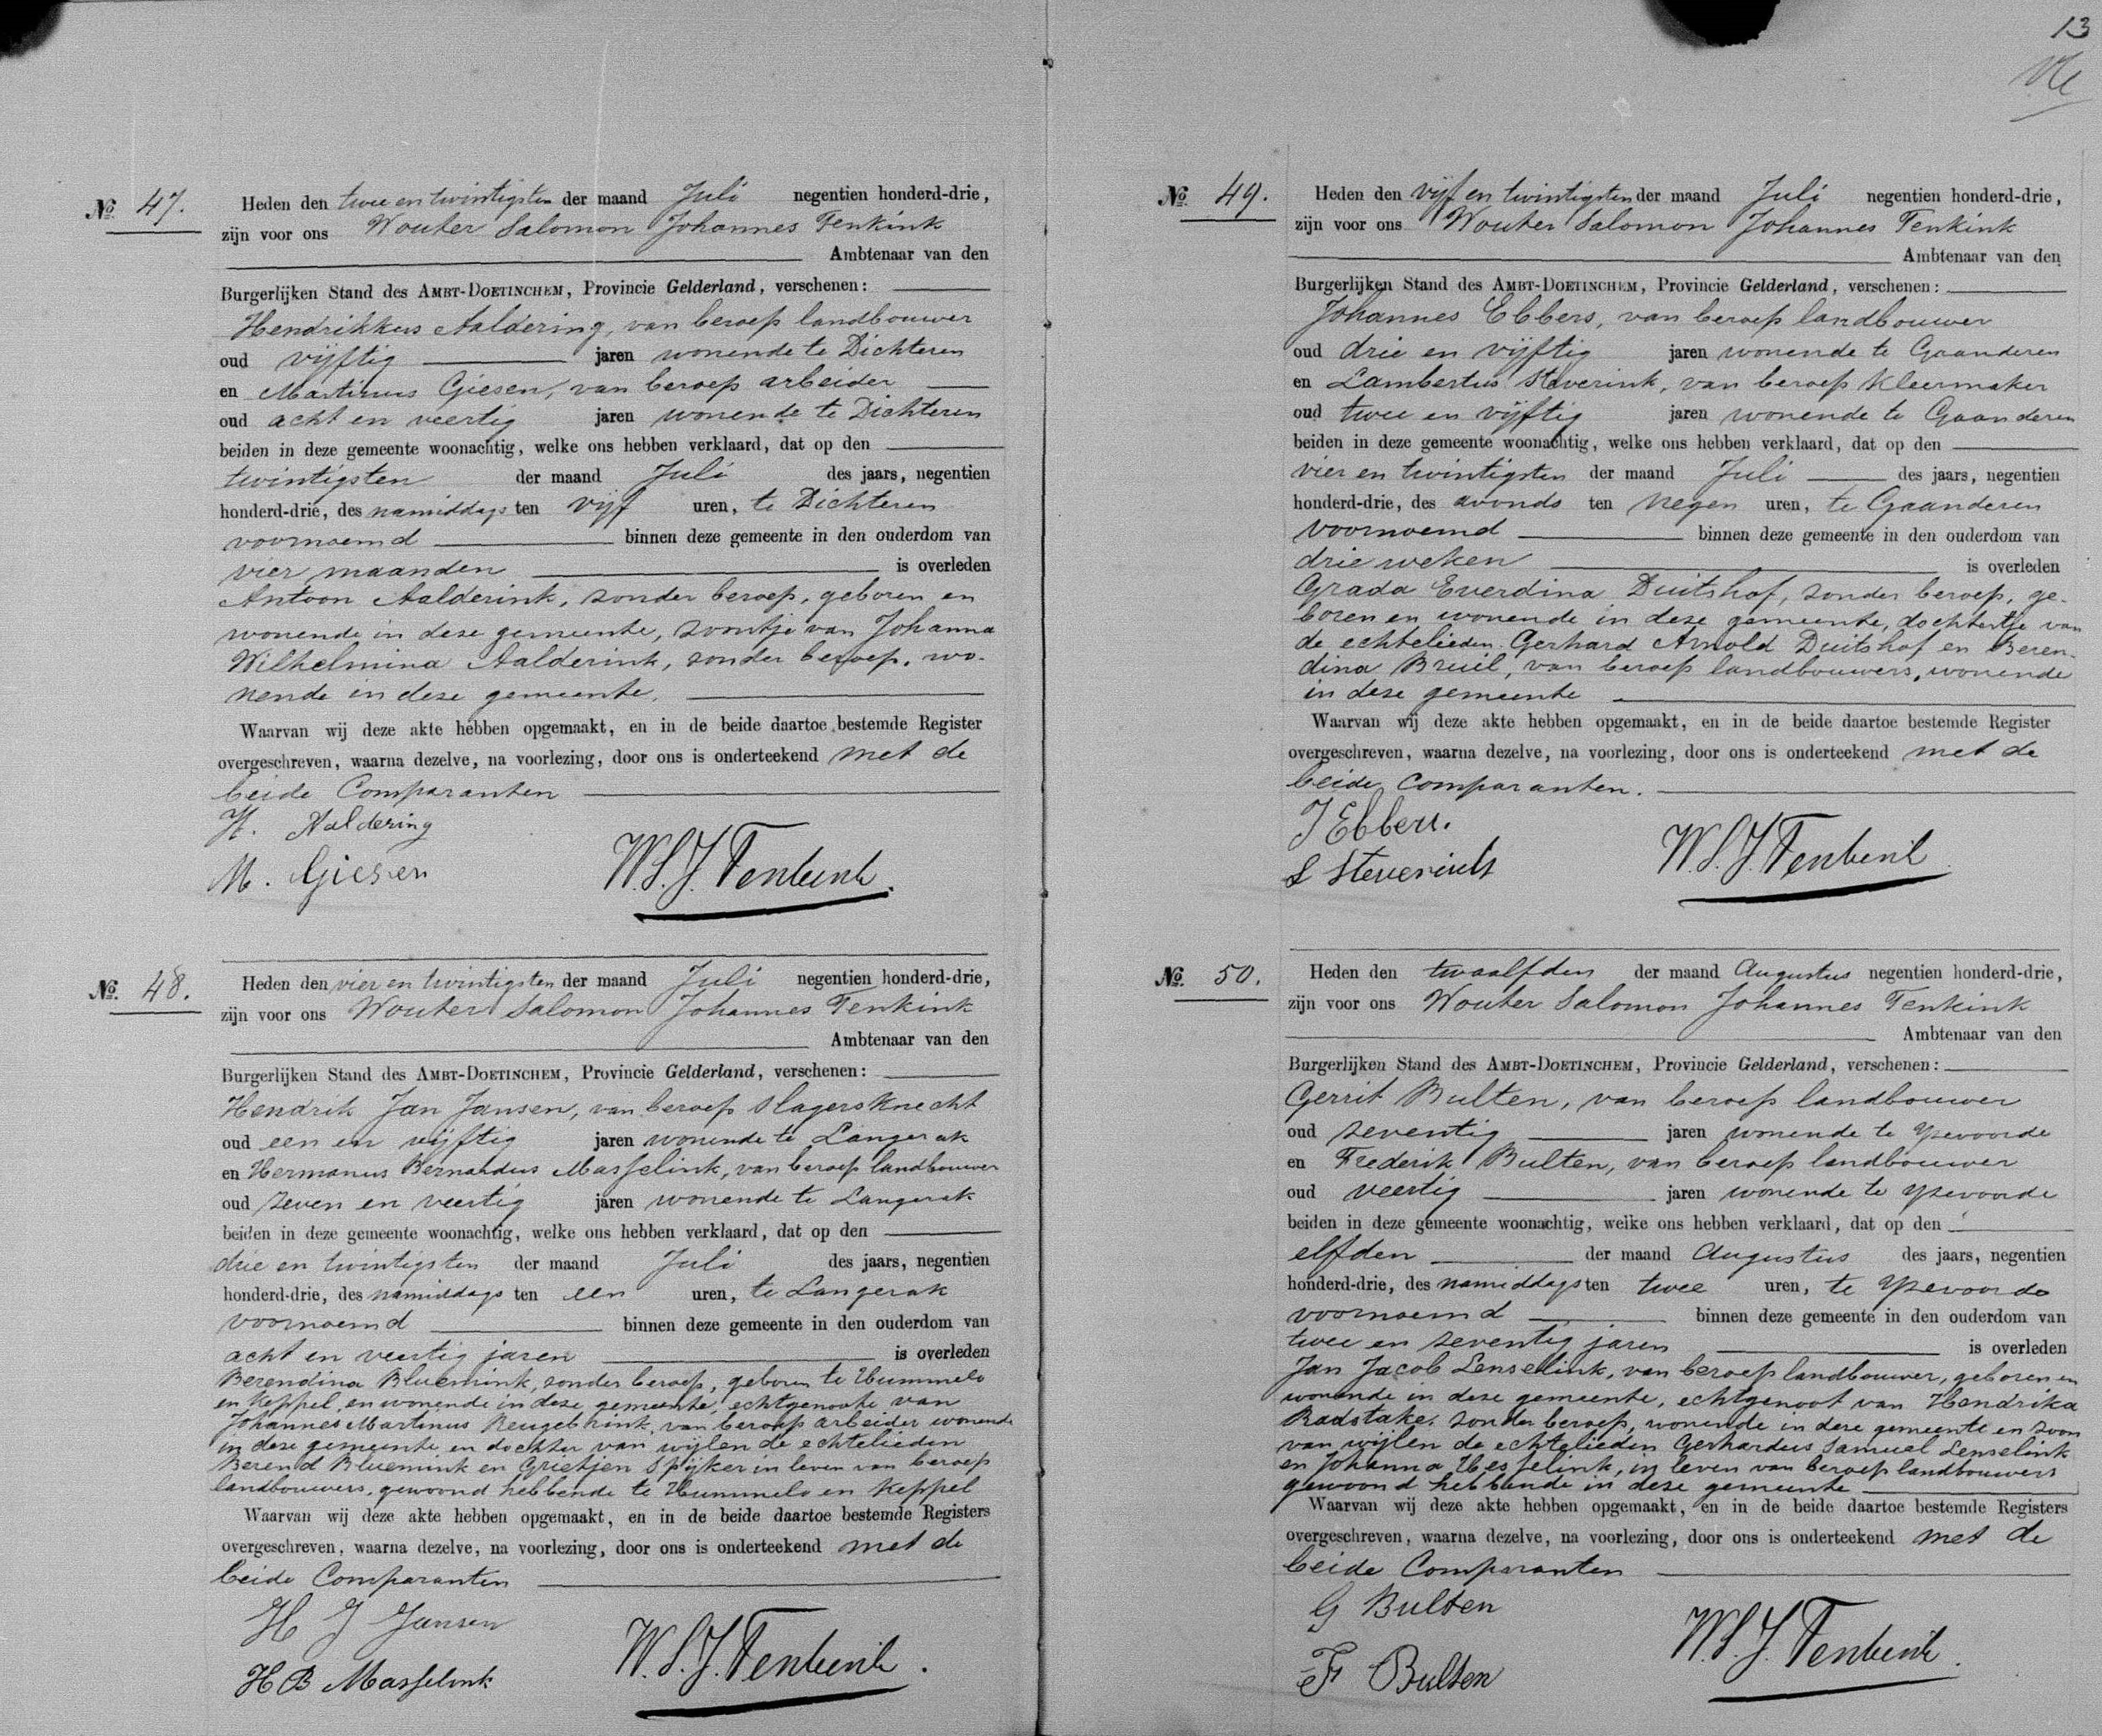 13
No. 47.
Heden den twee en twintigsten der maand Juli negentien honderd-drie,
zijn voor ons Wouter Salomon Johannes Tenkink
Ambtenaar van den
Burgerlijken Stand des AMBT-DOETINCHEM, Provincie Gelderland, verschenen:
Hendrikkus Aaldering, van beroep landbouwer
oud vijftig jaren wonende te Dichteren
en Martinus Giesen, van beroep arbeider
oud acht en veertig jaren wonende te Dichteren
beiden in deze gemeente woonachtig, welke ons hebben verklaard, dat op den
twintigsten der maand Juli des jaars, negentien
honderd-drie, des namiddags ten vijf uren, te Dichteren
voornoemd binnen deze gemeente in den ouderdom van
vier maanden is overleden
Antoon Aalderink, zonder beroep, geboren en
wonende in deze gemeente, zoontje van Johanna
Wilhelmina Aalderink, zonder beroep, wo-
nende in deze gemeente.
Waarvan wij deze akte hebben opgemaakt, en in de beide daartoe bestemde Register
overgeschreven, waarna dezelve, na voorlezing, door ons is onderteekend met de
beide Comparanten
H. Aaldering
M. Giesen
W.S.J. Tenkink.
No. 48.
Heden den vier en twintigsten der maand Juli negentien honderd-drie,
zijn voor ons Wouter Salomon Johannes Tenkink
Ambtenaar van den
Burgerlijken Stand des AMBT-DOETINCHEM, Provincie Gelderland, verschenen:
Hendrik Jan Jansen, van beroep slagersknecht
oud een en vijftig jaren wonende te Langerak
en Hermanus Bernardus Masselink, van beroep landbouwer
oud zeven en veertig jaren wonende te Langerak
beiden in deze gemeente woonachtig, welke ons hebben verklaard, dat op den
drie en twintigsten der maand Juli des jaars, negentien
honderd-drie, des namiddags ten een uren, te Langerak
voornoemd binnen deze gemeente in den ouderdom van
acht en veertig jaren is overleden
Berendina Bluemink, zonder beroep, geboren te Hummelo
en Keppel, en wonende in deze gemeente, echtgenoote van
Johannes Martinus Beugelink, van beroep arbeider wonende
in deze gemeente en dochter van wijlen de echtelieden
Berend Bluemink en Grietjen Spijker in leven van beroep
landbouwers, gewoond hebbende te Hummelo en Keppel
Waarvan wij deze akte hebben opgemaakt, en in de beide daartoe bestemde Registers
overgeschreven, waarna dezelve, na voorlezing, door ons is onderteekend met de
beide Comparanten
H J Jansen
H B Masselink
W.S.J. Tenkink.
No. 49.
Heden den vijf en twintigsten der maand Juli negentien honderd-drie,
zijn voor ons Wouter Salomon Johannes Tenkink
Ambtenaar van den
Burgerlijken Stand des AMBT-DOETINCHEM, Provincie Gelderland, verschenen:
Johannes Ebbers, van beroep landbouwer
oud drie en vijftig jaren wonende te Gaanderen
en Lambertus Steverink, van beroep kleermaker
oud twee en vijftig jaren wonende te Gaanderen
beiden in deze gemeente woonachtig, welke ons hebben verklaard, dat op den
vier en twintigsten der maand Juli des jaars, negentien
honderd-drie, des avonds ten negen uren, te Gaanderen
voornoemd binnen deze gemeente in den ouderdom van
drie weken is overleden
Grada Everdina Duitshof, zonder beroep, ge-
boren en wonende in deze gemeente, dochtertje van
de echtelieden Gerhard Arnold Duitshof en Beren-
dina Bruil, van beroep landbouwers, wonende
in deze gemeente
Waarvan wij deze akte hebben opgemaakt, en in de beide daartoe bestemde Register
overgeschreven, waarna dezelve, na voorlezing, door ons is onderteekend met de
beide Comparanten.
J Ebbers.
L Steverink
W.S.J. Tenkink
No. 50.
Heden den twaalfden der maand Augustus negentien honderd-drie,
zijn voor ons Wouter Salomon Johannes Tenkink
Ambtenaar van den
Burgerlijken Stand des AMBT-DOETINCHEM, Provincie Gelderland, verschenen:
Gerrit Bulten, van beroep landbouwer
oud zeventig jaren wonende te Yzevoorde
en Frederik Bulten, van beroep landbouwer
oud veertig jaren wonende te Yzevoorde
beiden in deze gemeente woonachtig, welke ons hebben verklaard, dat op den
elfden der maand Augustus des jaars, negentien
honderd-drie, des namiddags ten twee uren, te Yzevoorde
voornoemd binnen deze gemeente in den ouderdom van
twee en zeventig jaren is overleden
Jan Jacob Lenselink, van beroep landbouwer, geboren en
wonende in deze gemeente, echtgenoot van Hendrika
Radstake, zonder beroep, wonende in deze gemeente en zoon
van wijlen de echtelieden Gerhardus Samuel Lenselink
en Johanna Hesselink, in leven van beroep landbouwers
gewoond hebbende in deze gemeente
Waarvan wij deze akte hebben opgemaakt, en in de beide daartoe bestemde Registers
overgeschreven, waarna dezelve, na voorlezing, door ons is onderteekend met de
beide Comparanten
G Bulten
F Bulten
W.S.J. Tenkink.